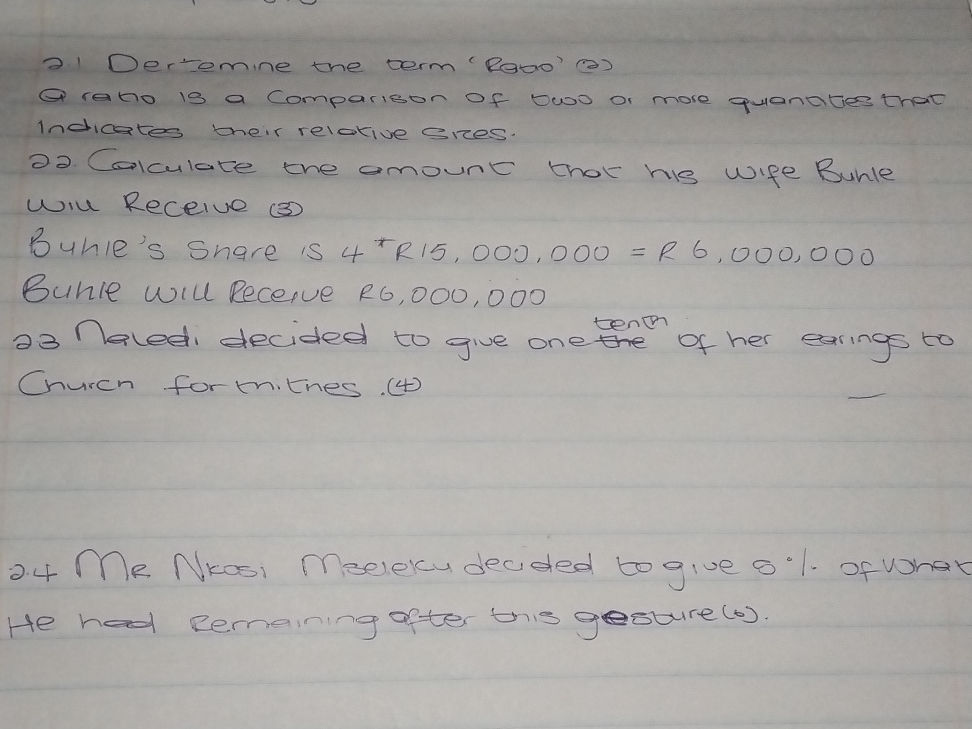 2.1 Dertemine the term 'Ratio' (2)
A ratio is a Comparison of two or more quianatites that
Indicates their relative sizes.
22. Calculate the amount that his wife Buhle
Will Receive (3)
Buhle's Share is 4 * R15,000,000 = R 6,000,000
Buhle will Receive R6,000,000
23 Naledi decided to give one the tenth of her earings to
Church for thithes. (4)
2.4 Mr Nkosi Mseleku decided to give 8 % of what
He had Remaining after this gesture (6).